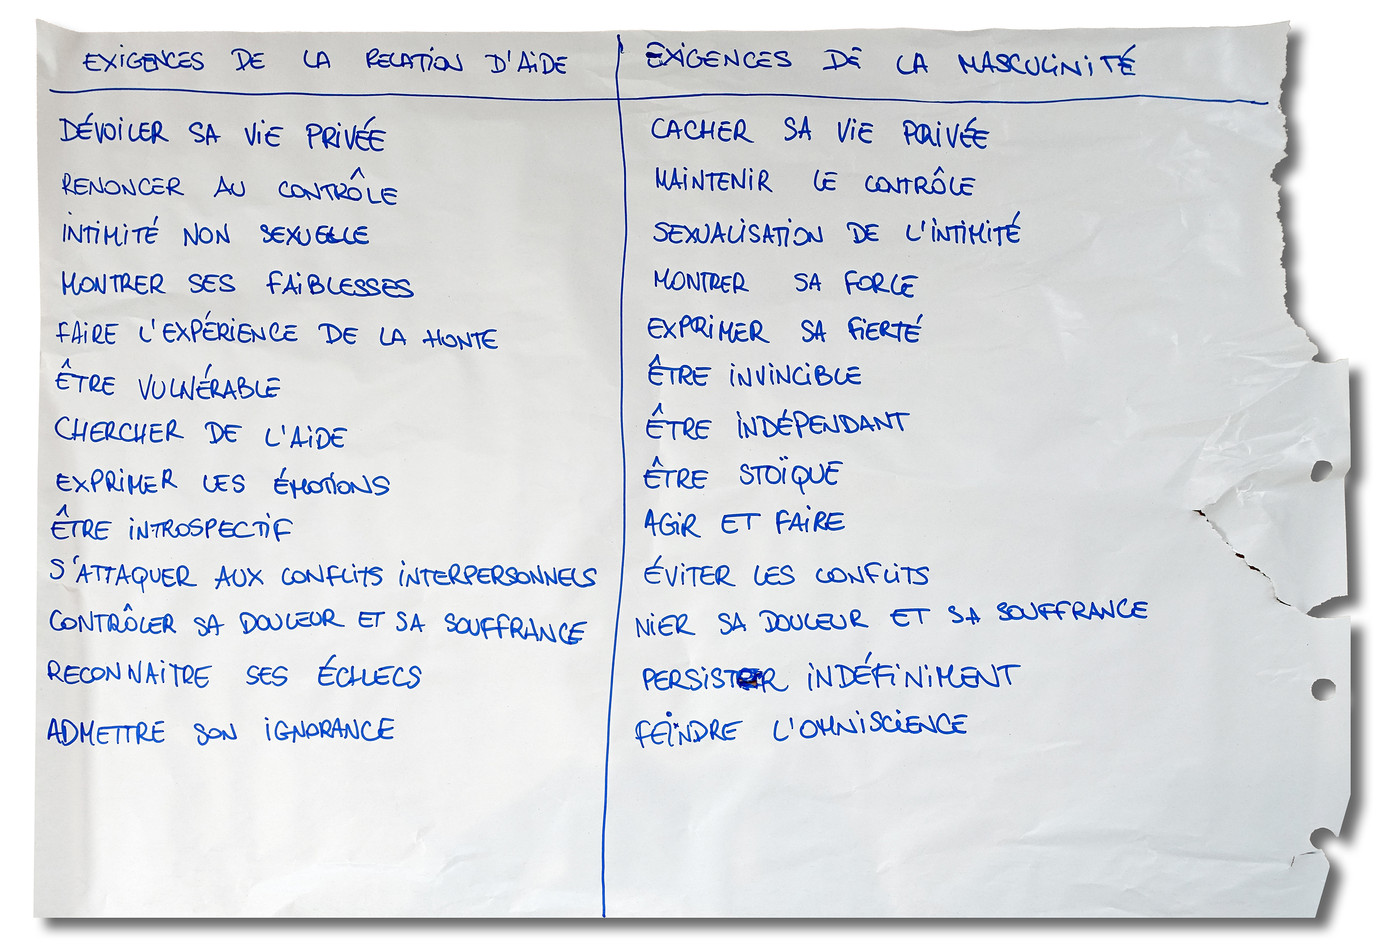 EXIGENCES DE LA RELATION D'AIDE | EXIGENCES DE LA MASCULINITÉ
DÉVOILER SA VIE PRIVÉE | CACHER SA VIE PRIVÉE
RENONCER AU CONTRÔLE | MAINTENIR LE CONTRÔLE
INTIMITÉ NON SEXUELLE | SEXUALISATION DE L'INTIMITÉ
MONTRER SES FAIBLESSES | MONTRER SA FORCE
FAIRE L'EXPÉRIENCE DE LA HONTE | EXPRIMER SA FIERTÉ
ÊTRE VULNÉRABLE | ÊTRE INVINCIBLE
CHERCHER DE L'AIDE | ÊTRE INDÉPENDANT
EXPRIMER LES ÉMOTIONS | ÊTRE STOÏQUE
ÊTRE INTROSPECTIF | AGIR ET FAIRE
S'ATTAQUER AUX CONFLITS INTERPERSONNELS | ÉVITER LES CONFLITS
CONTRÔLER SA DOULEUR ET SA SOUFFRANCE | NIER SA DOULEUR ET SA SOUFFRANCE
RECONNAITRE SES ÉCHECS | PERSISTER INDÉFINIMENT
ADMETTRE SON IGNORANCE | FEINDRE L'OMNISCIENCE